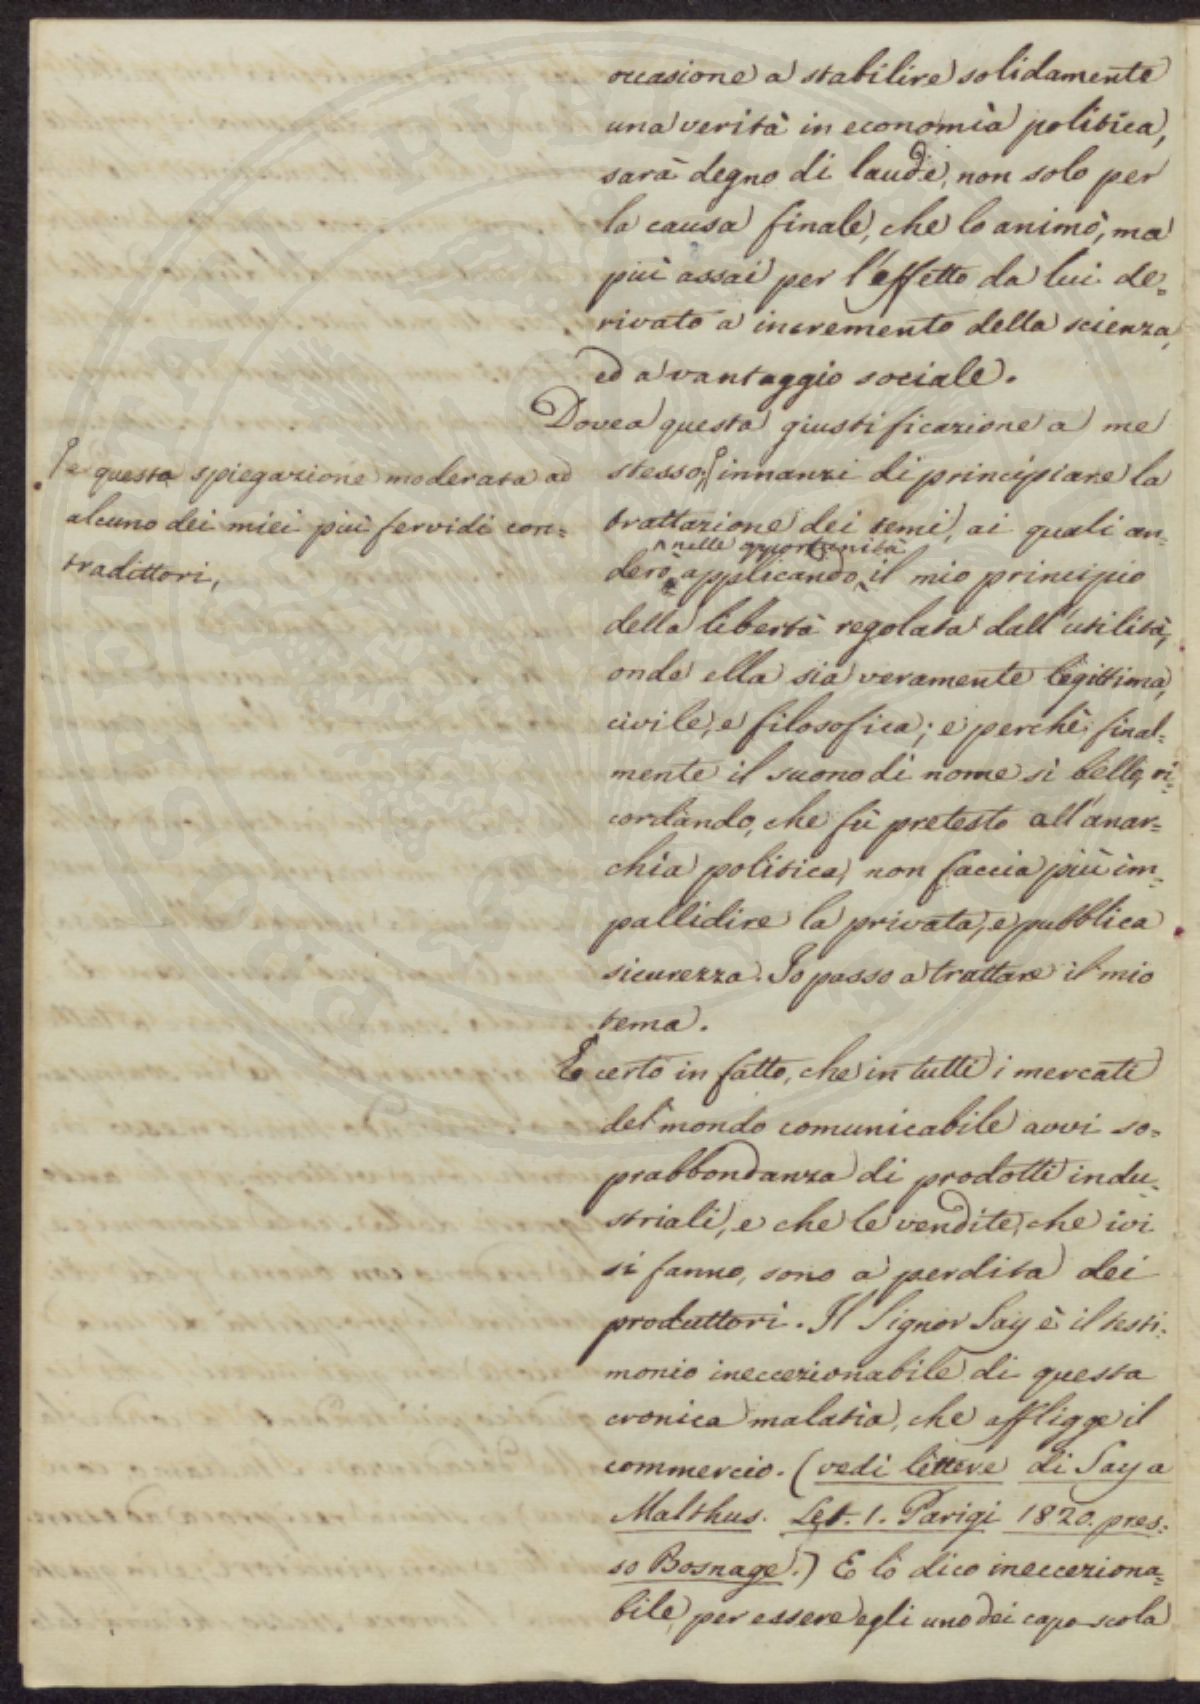 occasione a stabilire solidamente
una verità in economia politica,
sarà degno di laude, non solo per
la causa finale, che lo animò, ma
più assai per l'effetto da lui de=
rivato a incremento della scienza,
ed a vantaggio sociale.
Dovea questa giustificazione a me
stesso, innanzi di principiare la
e questa spiegazione moderata ad
alcuno dei miei più fervidi con=
tradittori,
trattazione dei temi, ai quali an=
nelle opportunità
derò applicando il mio principio
della libertà regolata dall'utilità,
onde ella sia veramente legittima,
civile, e filosofica; e perchè final=
mente il suono di nome sì bello, ri=
cordando, che fù pretesto all'anar=
chia politica, non faccia più im=
pallidire la privata, e pubblica
sicurezza. Io passo a trattare il mio
tema.
È certo in fatto, che in tutti i mercati
del mondo comunicabile avvi so=
prabbondanza di prodotti indu=
striali, e che le vendite, che ivi
si fanno, sono a perdita dei
produttori. Il Signor Say è il testi=
monio ineccezionabile di questa
cronica malatia, che affligge il
commercio. (vedi lettere di Say a
Malthus. Let. 1. Parigi 1820. pres=
so Bosnage.) E lo dico inecceziona=
bile, per essere egli uno dei capo-scola